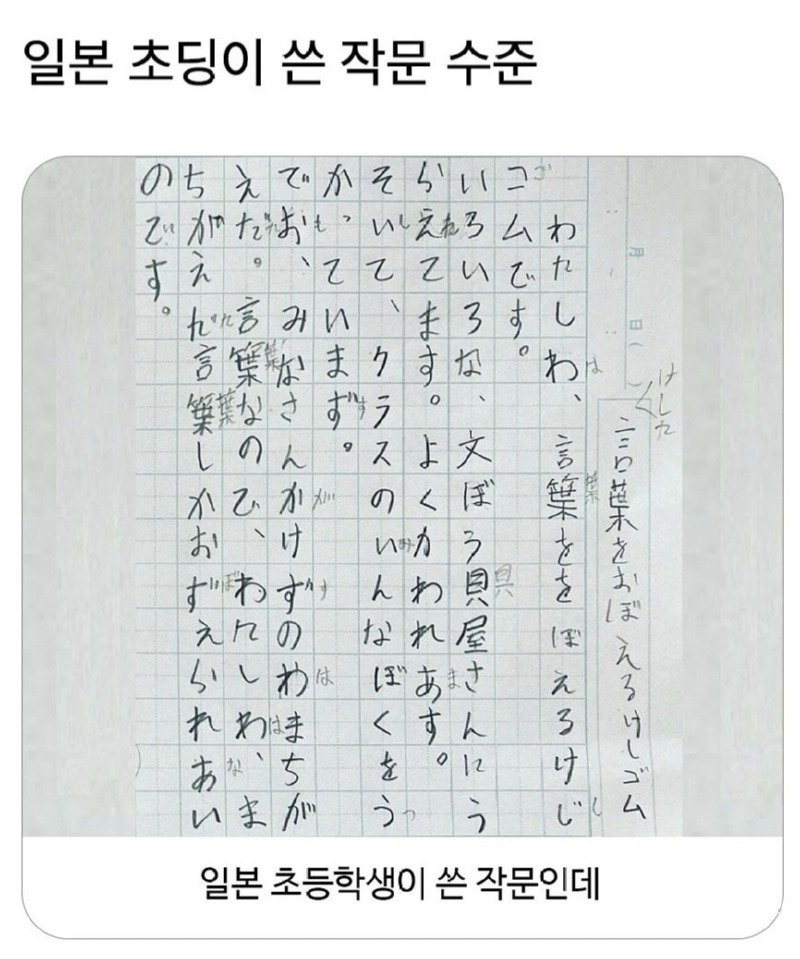 일본 초딩이 쓴 작문 수준
月 日( )
けした
言葉をおぼえるけしゴム
わたしわ、言葉ををぼえるけじ
コムです。
いろいろな、文ぼう貝屋さんにう
らえてます。よくかわれあす。
そいて、クラスのいんなぼくをう
かっていまず。
でお、みなさんかけずのわまちが
えだ。言葉なので、わたしわ、ま
ちがえだ言葉しかおずえられあい
のです。
일본 초등학생이 쓴 작문인데